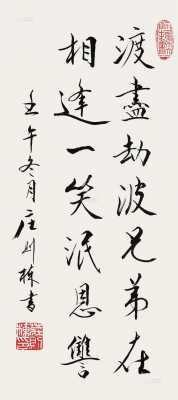 渡盡劫波兄弟在
相逢一笑泯恩讐
壬午冬月庄则栋書